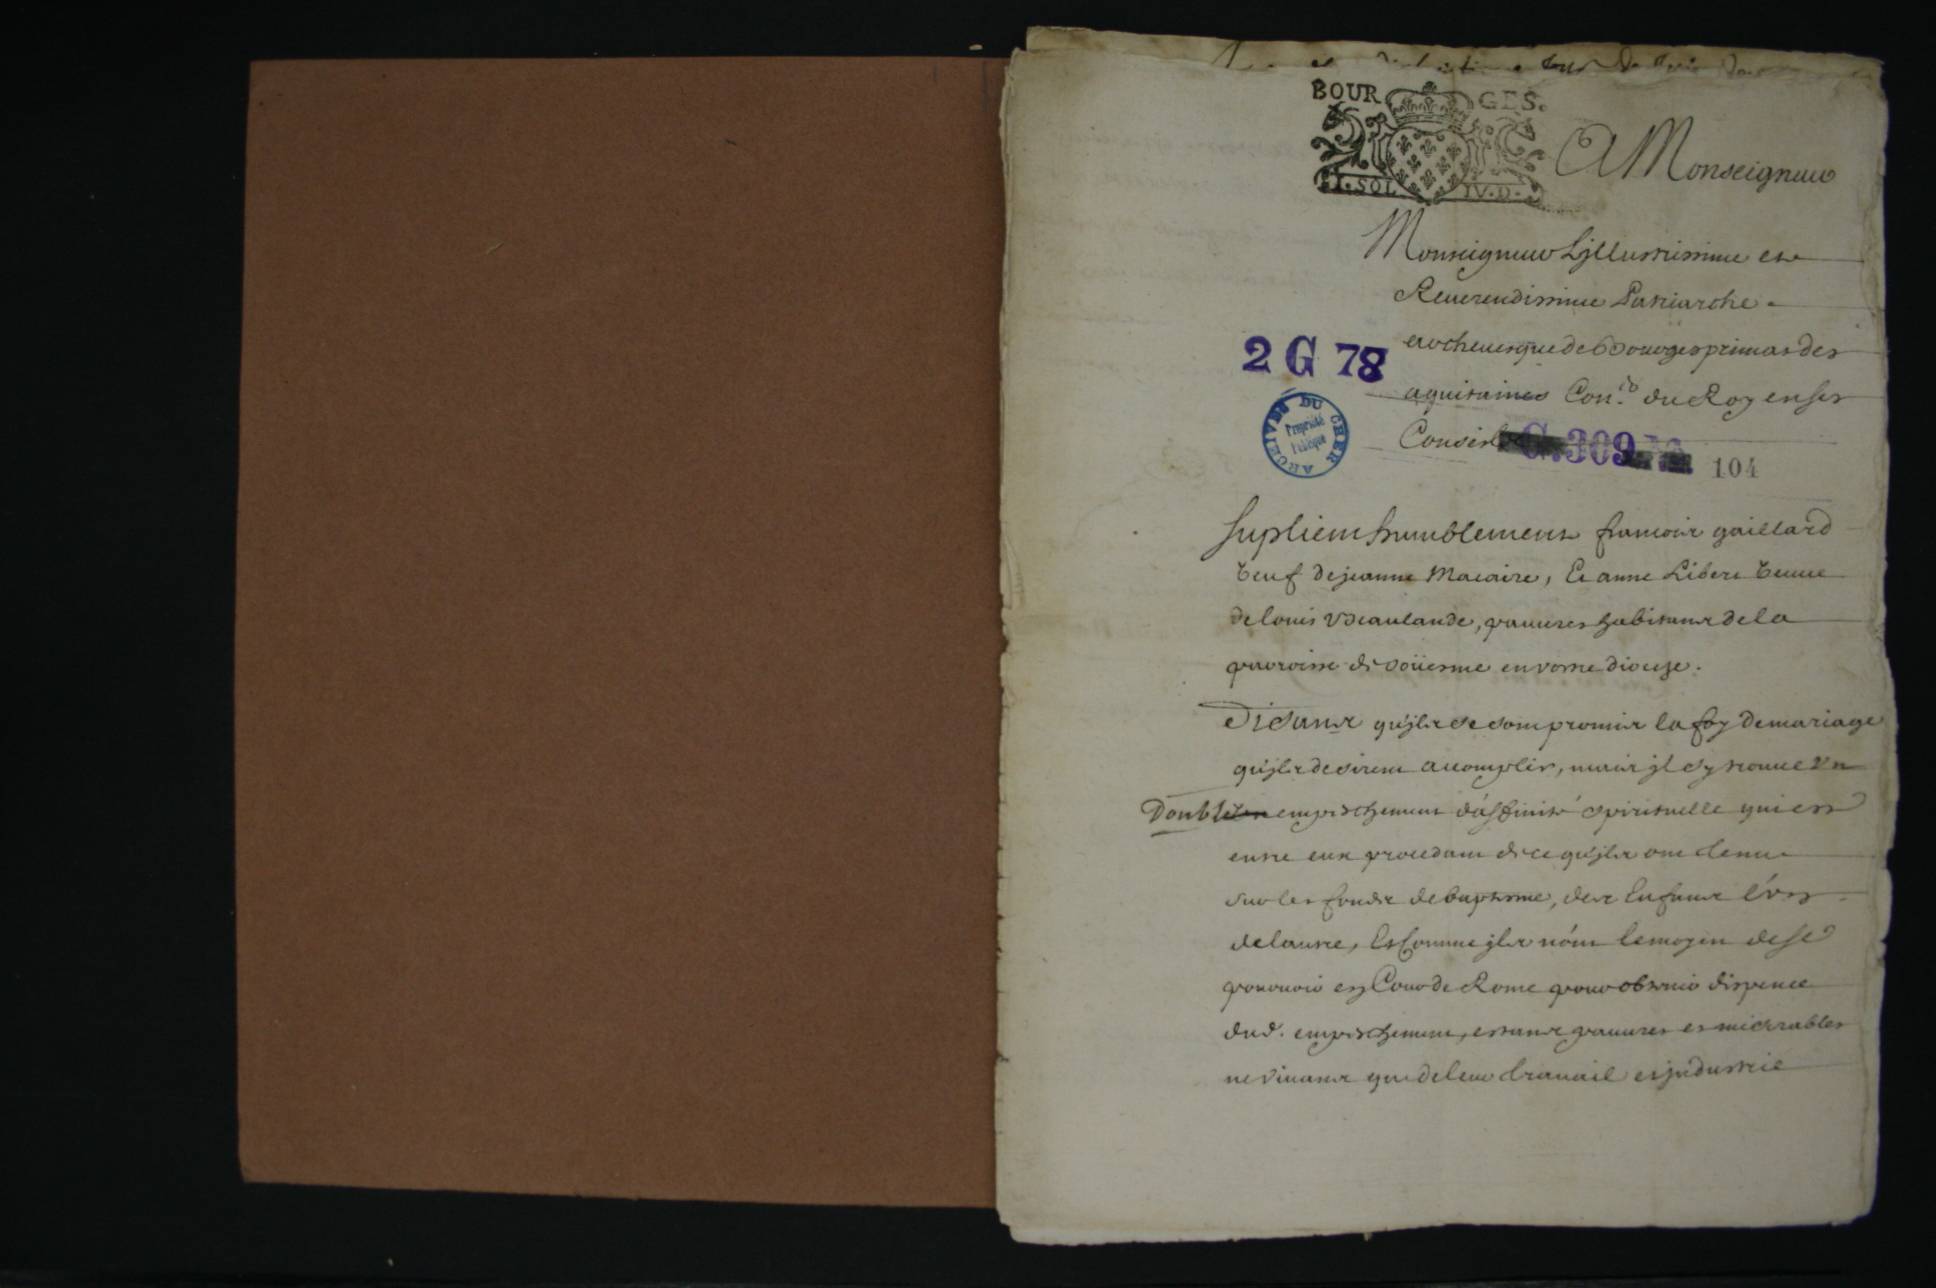 BOURGES.
I. SOL IV. D.
A Monseigneur
Monseigneur L'jllustrissime et
Reuerendissime Patriarche
archeuesque de Bourges primat des
aquitaines Con.er du Roy en ses
Conseils
2 G 78
ARCHIVES DU CHER
Propriété
Publique
G. 309
104
Suplient humblement francois gaillard
veuf de jeanne Macaire, Et anne Libere veuue
de louis, pauures habitans de la
parroisse de Soüesme en vostre diocese.
Disans qu'jls se sont promis la foy de mariage
qu'jls desirent accomplir, mais jl s'y trouue vn
Double empeschement d'affinité spirituelle qui est
entre eux procedant de ce qu'jls ont tenu
sur les fonds de baptesme, des Enfans l'vn
de l'autre, Et Comme jls n'ont le moyen de se
pouruoir en Cour de Rome pour obtenir dispence
dud. empeschement, estans pauures et miserables
ne viuans que de leur trauail et jndustrie